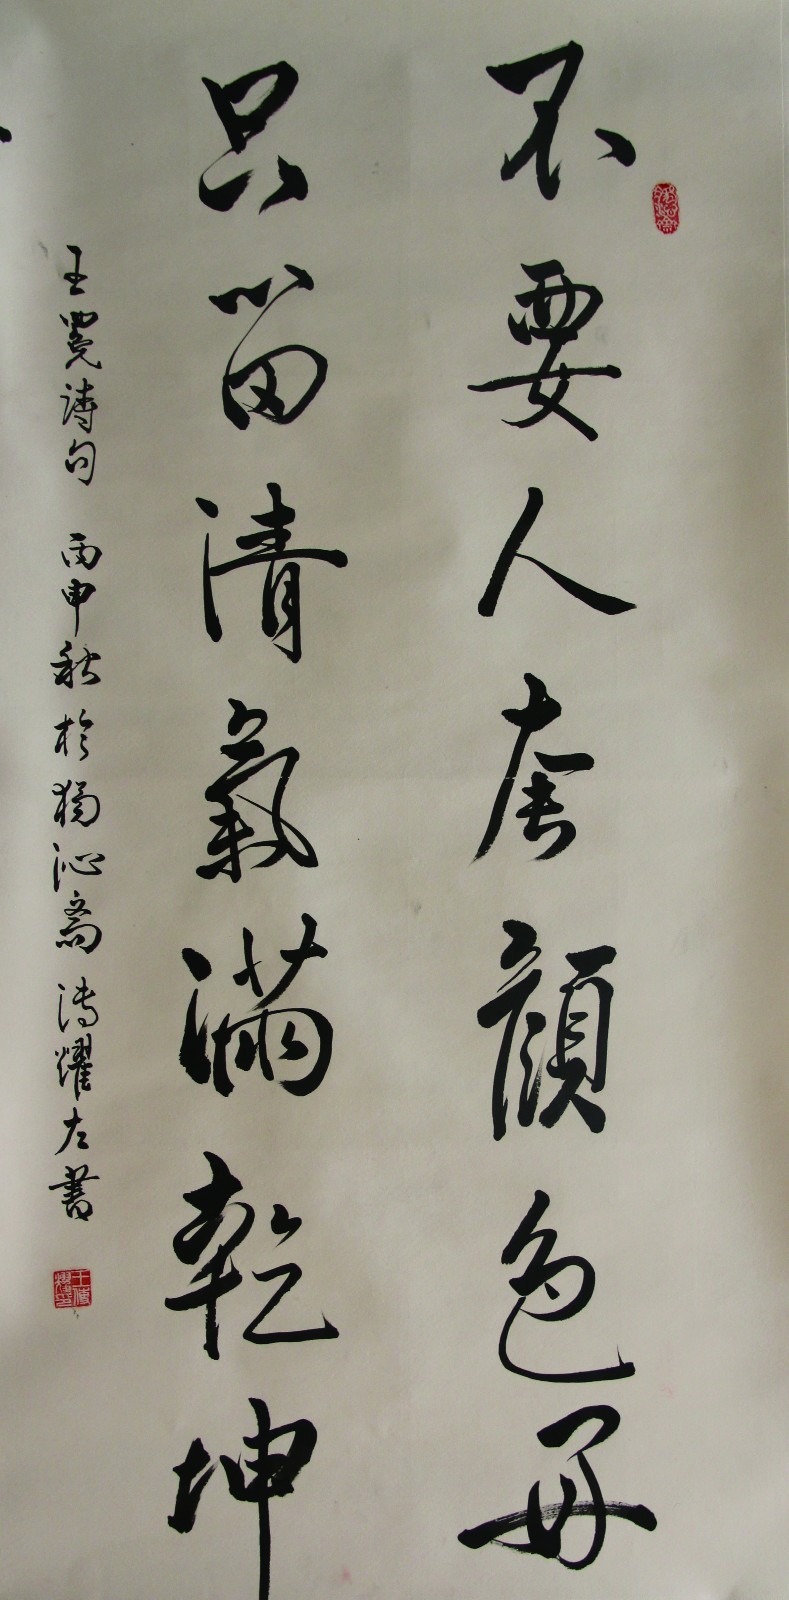 不要人夸顔色好
只留清氣滿乾坤
王冕詩句 丙申秋於獨沁斋 傳耀左書